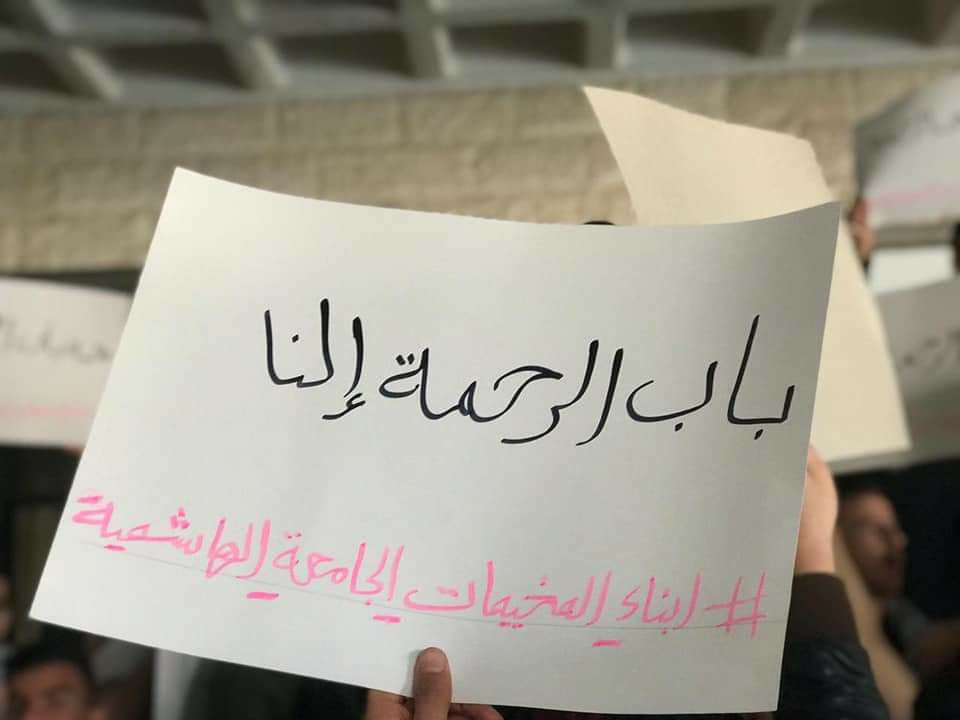 باب الرحمة إلنا
# ابناء المخيمات الجامعة الهاشمية